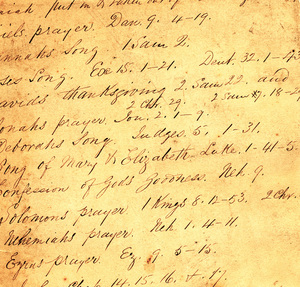 iels prayer. Dan. 9. 4-19.
annahs Song 1 Sam 2.
ses Song. Exo 15. 1-21. Deut. 32. 1-43
avids thanksgiving 2 Sam 22. and
2 Chr. 29. 2 Sam 7. 18-2
onahs prayer. Jon. 2. 1-9.
Deborahs Song Judges. 5. 1-31.
Song of Mary & Elizabeth Luke. 1-41-5
Confession of Gods Goodness. Neh. 9.
Solomons prayer. 1 Kings 8. 12-53. 2 Chr.
Nehemiahs prayer. Neh 1. 4-11.
Ezras prayer. Ez 9. 5-15.
14. 15. 16. & 17.